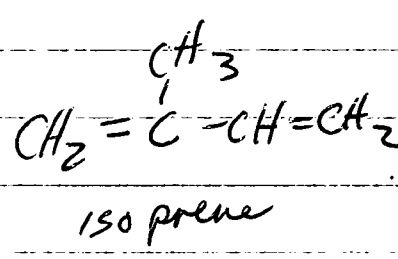 CH3
CH2=C-CH=CH2
isoprene